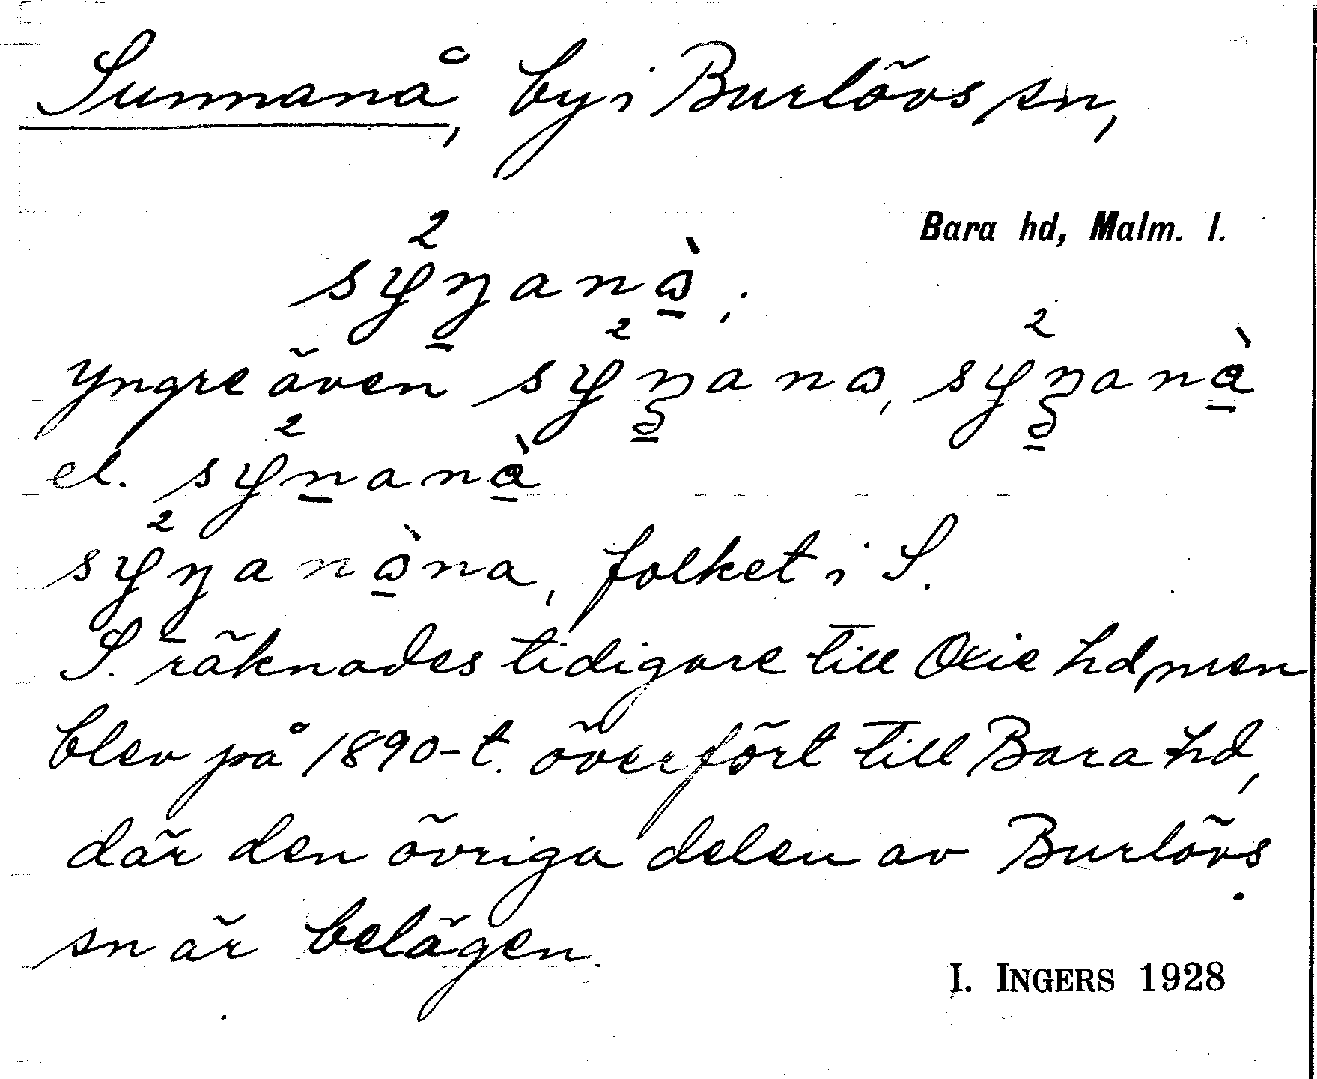 Sunnanå, by i Burlövs sn,
Bara hd, Malm. l.
yngre även
el.
folket i S.
S. räknades tidigare till Oxie hd, men
blev på 1890-t. överfört till Bara hd,
där den övriga delen av Burlövs
sn är belägen.
I. INGERS 1928